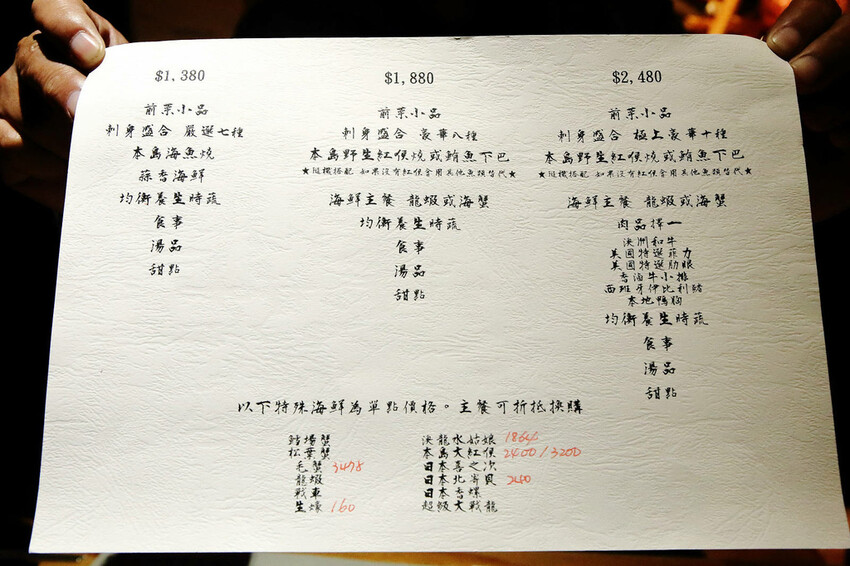 $1,380
前菜小品
刺身盛合 嚴選七種
本島海魚燒
蒜香海鮮
均衡養生時蔬
食事
湯品
甜點
$1,880
前菜小品
刺身盛合 豪華八種
本島野生紅條燒或鮪魚下巴
★隨機搭配 如果沒有紅條會用其他魚類替代★
海鮮主餐 龍蝦或海蟹
均衡養生時蔬
食事
湯品
甜點
$2,480
前菜小品
刺身盛合 極上豪華十種
本島野生紅條燒或鮪魚下巴
★隨機搭配 如果沒有紅條會用其他魚類替代★
海鮮主餐 龍蝦或海蟹
肉品擇一
澳洲和牛
美國特選菲力
美國特選肋眼
香滷牛小排
西班牙伊比利豬
本地鴨胸
均衡養生時蔬
食事
湯品
甜點
以下特殊海鮮為單點價格。主餐可折抵換購
鱈場蟹
松葉蟹
毛蟹 3478
龍蝦
戰車
生蠔 160
澳龍水姑娘 1864
本島大紅條 2400/3200
日本喜之次
日本北寄貝 240
日本香螺
超級大戰龍